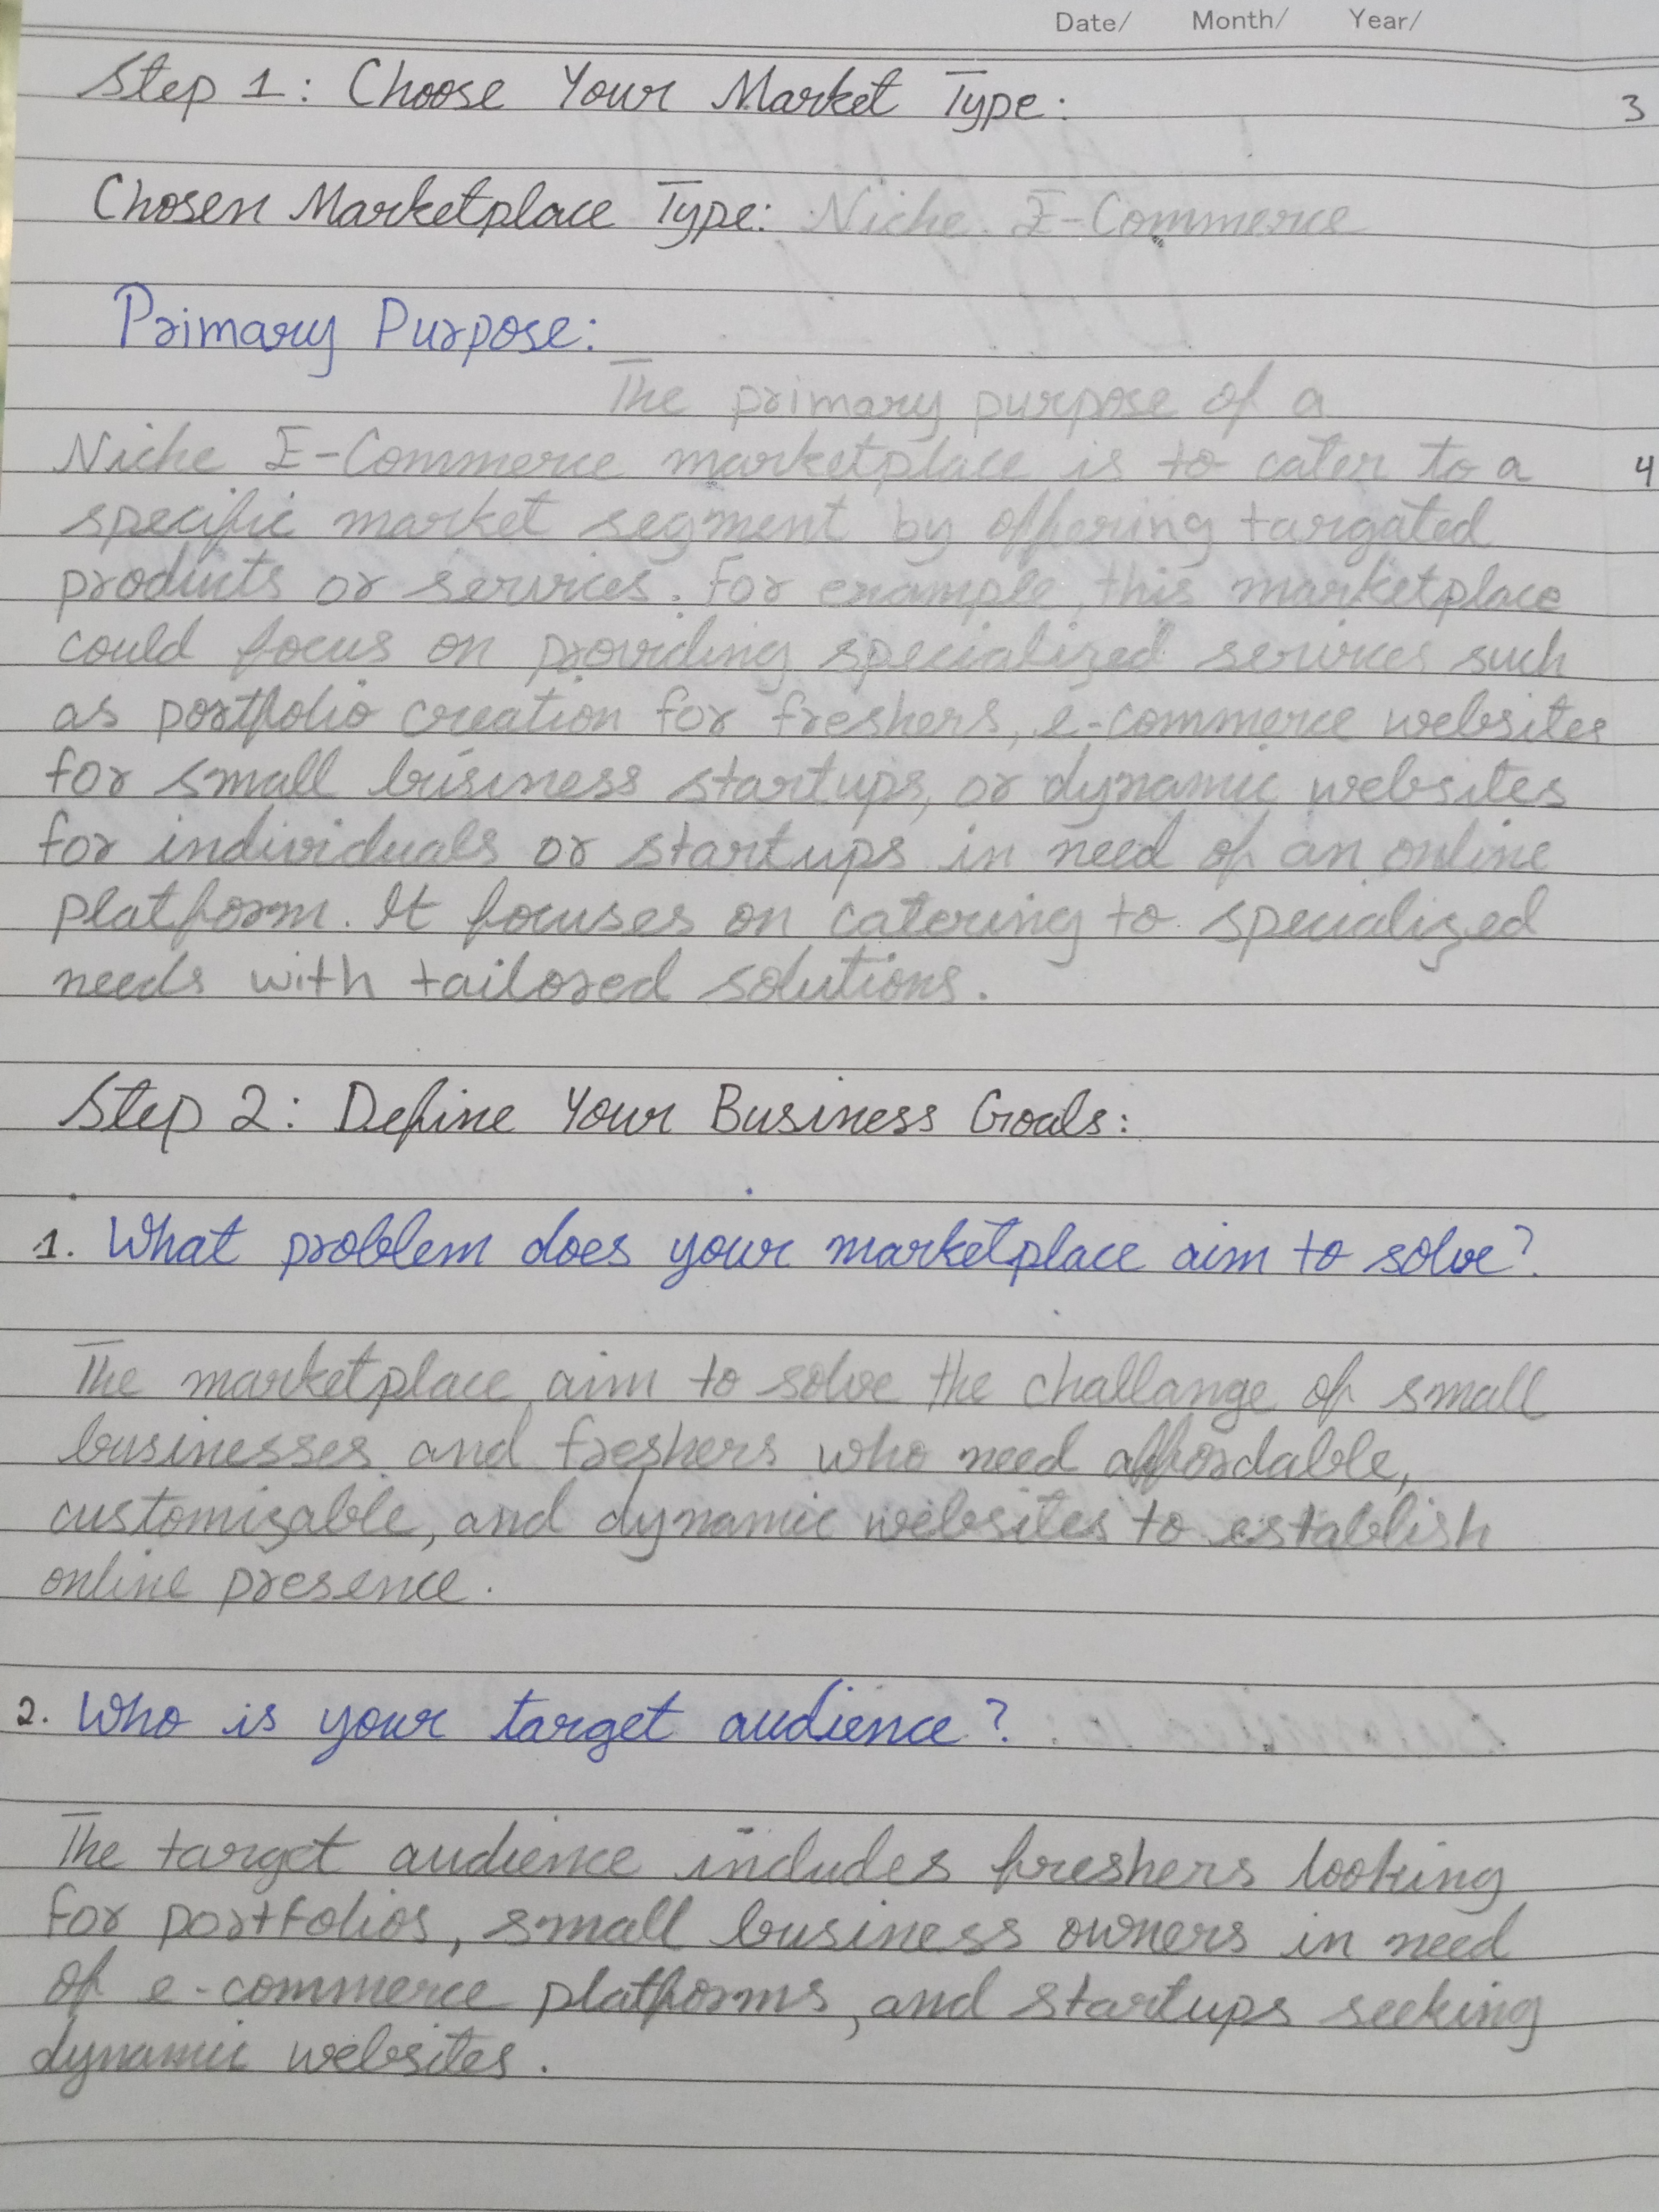 Date/ Month/ Year/
Step 1: Choose Your Market Type:
3
Chosen Marketplace Type: Niche E-Commerce
Primary Purpose:
The primary purpose of a
Niche E-Commerce marketplace is to cater to a
4
specific market segment by offering targated
products or services. For example, this marketplace
could focus on providing specialized services such
as portfolio creation for freshers, e-commerce websites
for small business startups, or dynamic websites
for individuals or startups in need of an online
platform. It focuses on catering to specialized
needs with tailored solutions.
Step 2: Define Your Business Goals:
1. What problem does your marketplace aim to solve?
The marketplace aim to solve the challange of small
businesses and freshers who need affordable,
customizable, and dynamic websites to establish
online presence.
2. Who is your target audience?
The target audience includes freshers looking
for portfolios, small business owners in need
of e-commerce platforms, and startups seeking
dynamic websites.